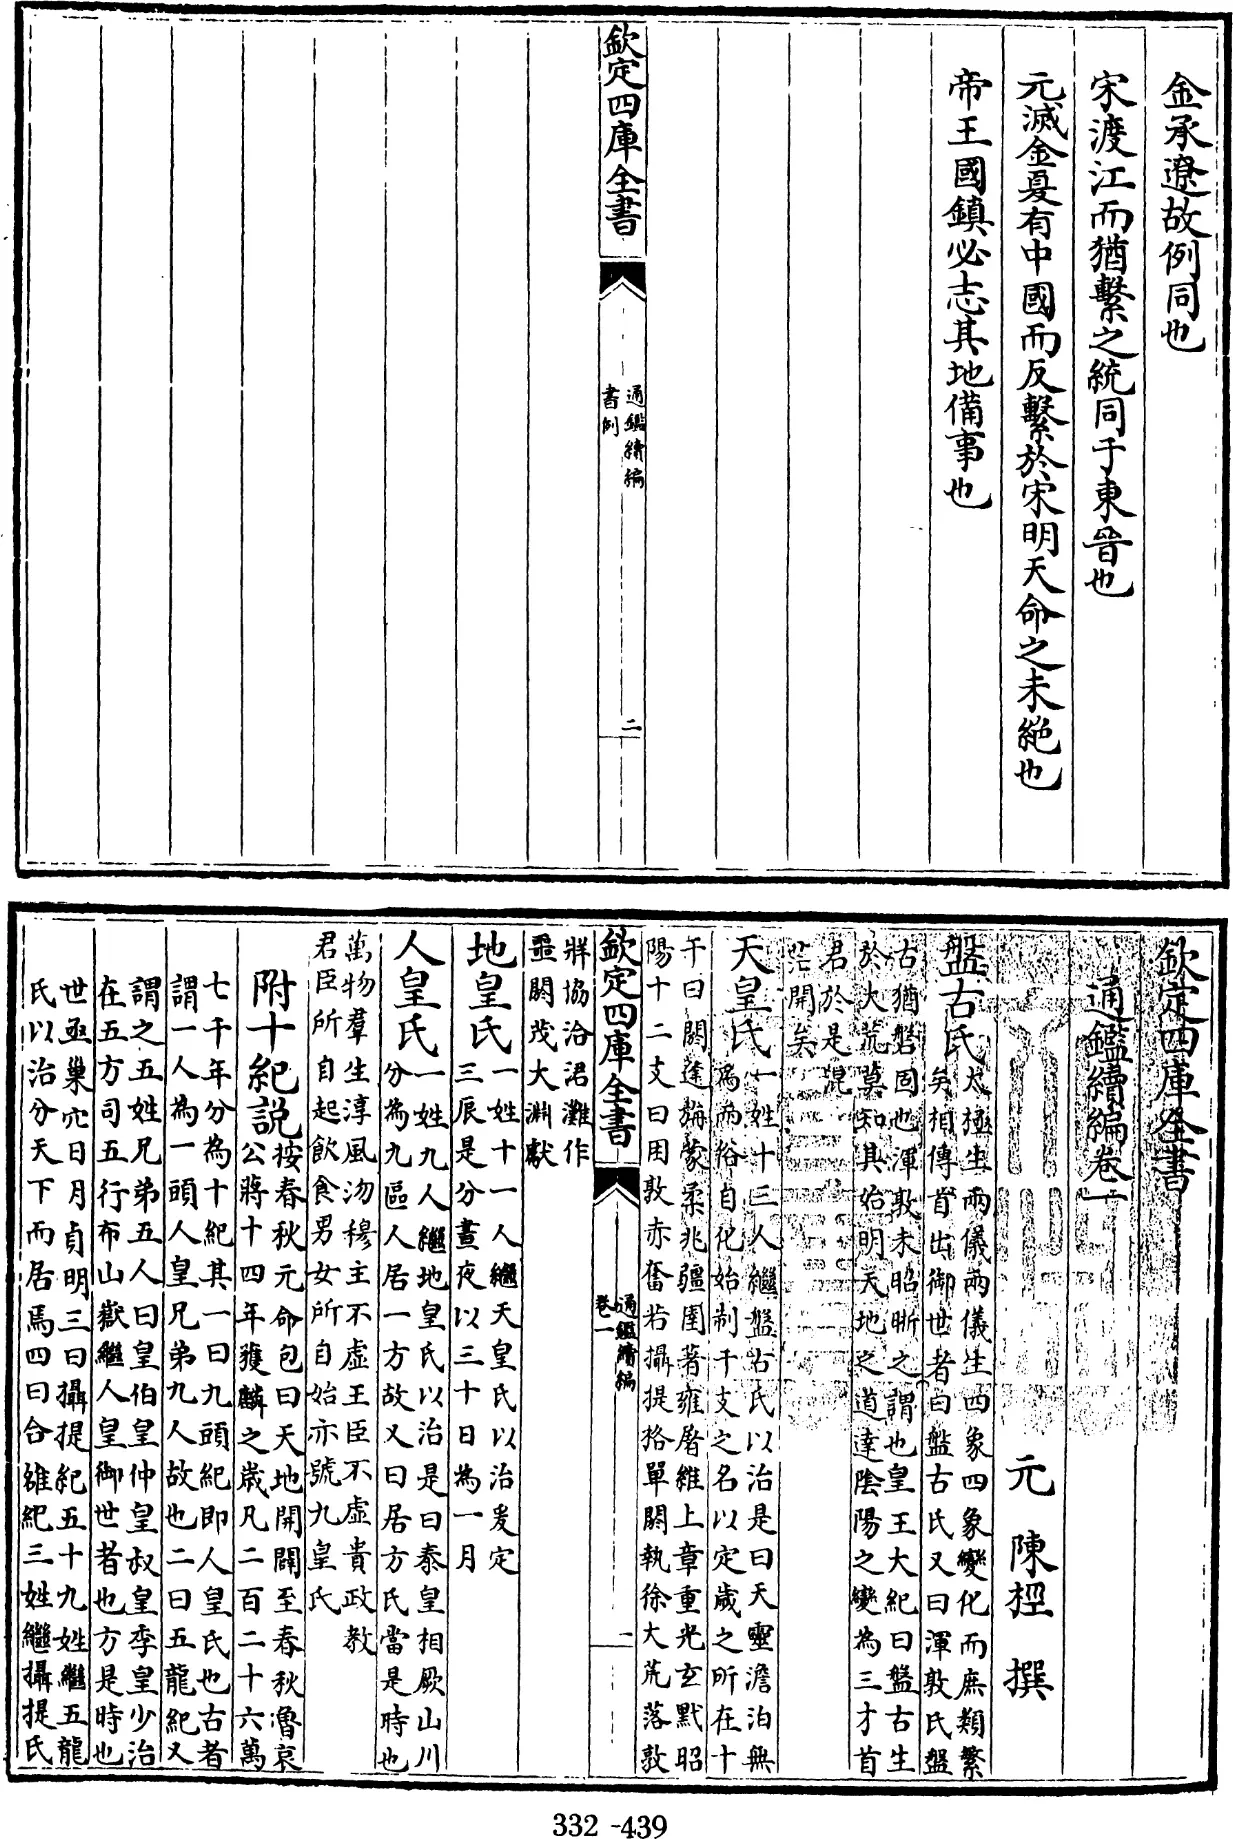 金承遼故例同也
宋渡江而猶繫之統同于東晉也
元滅金夏有中國而反繫於宋明天命之未絶也
帝王國鎮必志其地備事也
欽定四庫全書
通鑑續編
書例
二
欽定四庫全書
通鑑續編卷一
元 陳桱 撰
盤古氏
太極生兩儀兩儀生四象四象變化而庶類繁
矣相傳首出御世者曰盤古氏又曰渾敦氏盤
古猶磐固也渾敦未昭晰之謂也皇王大紀曰盤古生
於大荒莫知其始明天地之道達陰陽之變為三才首
君於是混
茫開矣
天皇氏
一姓十三人繼盤古氏以治是曰天靈澹泊無
為而俗自化始制干支之名以定歲之所在十
干曰閼逢旃蒙柔兆彊圉著雍屠維上章重光玄黓昭
陽十二支曰困敦赤奮若攝提格單閼執徐大荒落敦
欽定四庫全書
通鑑續編
卷一
一
牂協洽涒灘作
噩閹茂大淵獻
地皇氏
一姓十一人繼天皇氏以治爰定
三辰是分晝夜以三十日為一月
人皇氏
一姓九人繼地皇氏以治是曰泰皇相厥山川
分為九區人居一方故又曰居方氏當是時也
萬物羣生淳風沕穆主不虛王臣不虛貴政教
君臣所自起飲食男女所自始亦號九皇氏
附十紀説
按春秋元命包曰天地開闢至春秋魯哀
公將十四年獲麟之歲凡二百二十六萬
七千年分為十紀其一曰九頭紀即人皇氏也古者
謂一人為一頭人皇兄弟九人故也二曰五龍紀又
謂之五姓兄弟五人曰皇伯皇仲皇叔皇季皇少治
在五方司五行布山嶽繼人皇御世者也方是時也
世亟巢穴日月貞明三曰攝提紀五十九姓繼五龍
氏以治分天下而居焉四曰合雒紀三姓繼攝提氏
332-439